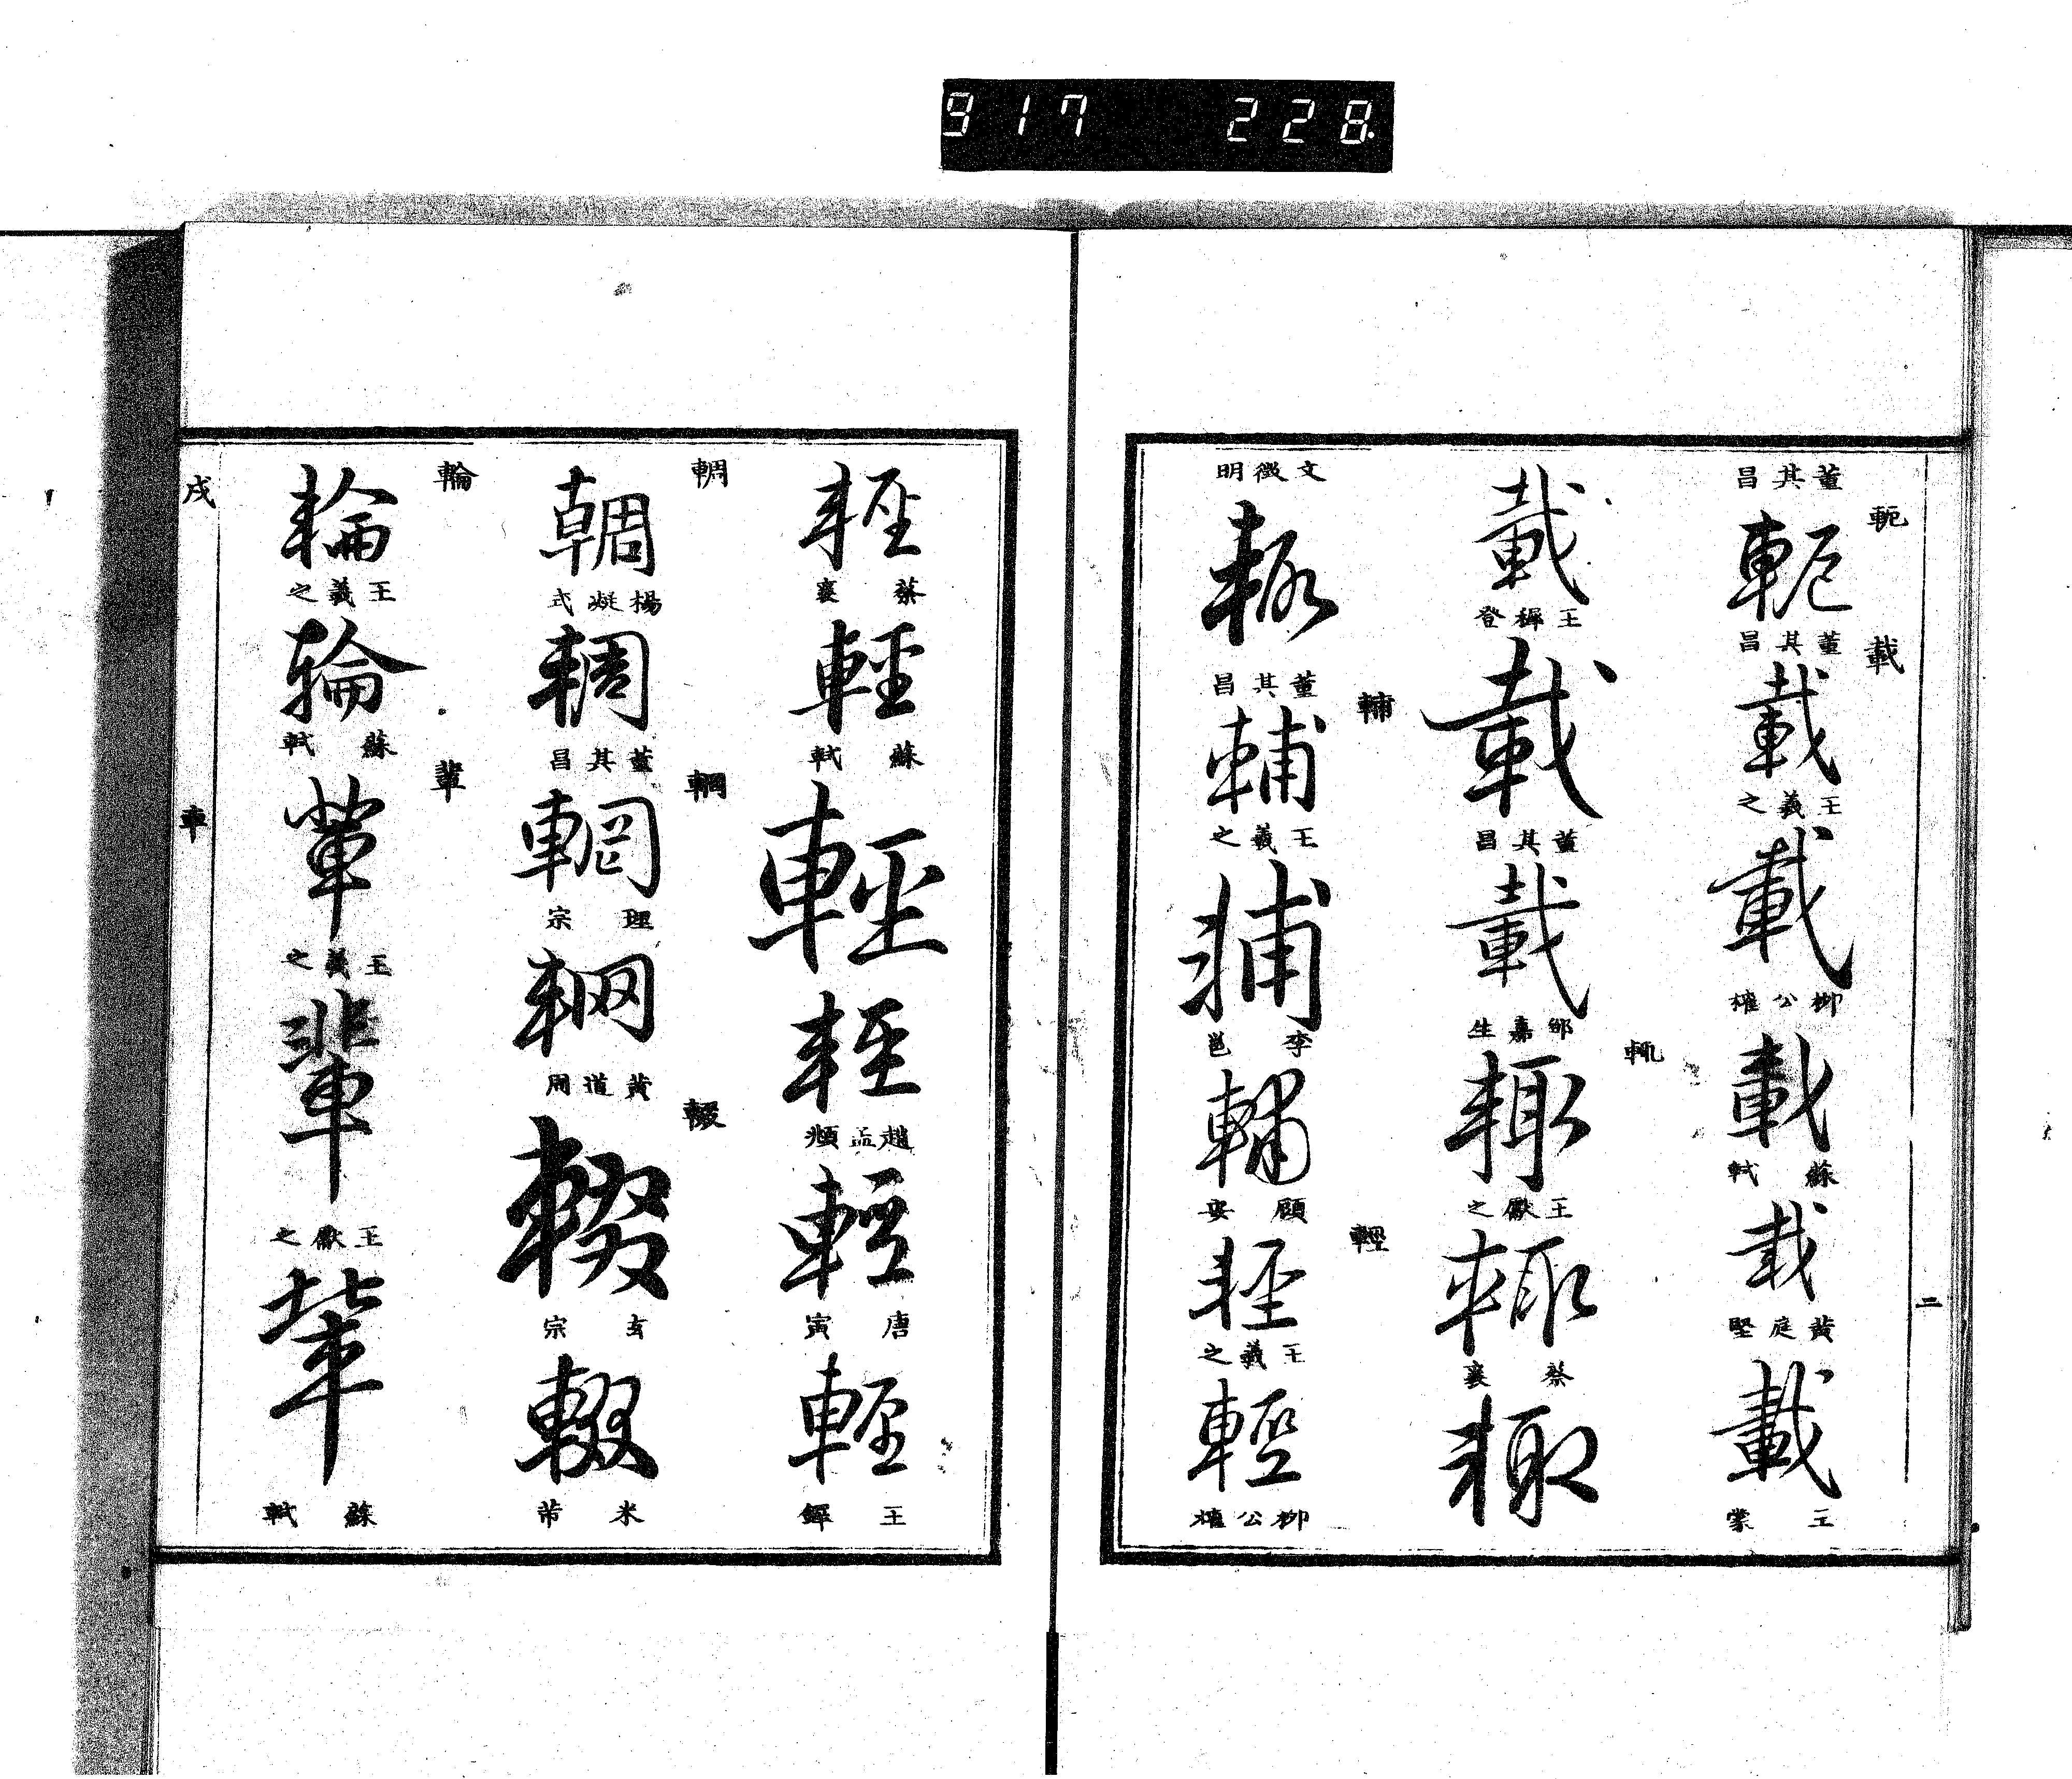 917 228
軛
董其昌
軛
董其昌
載
載
王羲之
載
柳公權
載
蘇軾
載
黃庭堅
載
王蒙
二
載
王穉登
載
董其昌
載
鄒嘉生
輒
輒
王獻之
輒
蔡襄
輒
文徵明
輒
董其昌
輔
輔
王羲之
輔
李邕
輔
顧安
輕
輕
王羲之
輕
柳公權
輕
蔡襄
輕
蘇軾
輕
輕
趙孟頫
輕
唐寅
輕
王鐸
輖
輖
楊凝式
輖
董其昌
輞
輞
理宗
輞
黃道周
輟
輟
玄宗
輟
米芾
輪
輪
王羲之
輪
蘇軾
輩
輩
王羲之
輩
王獻之
輩
蘇軾
戌
車